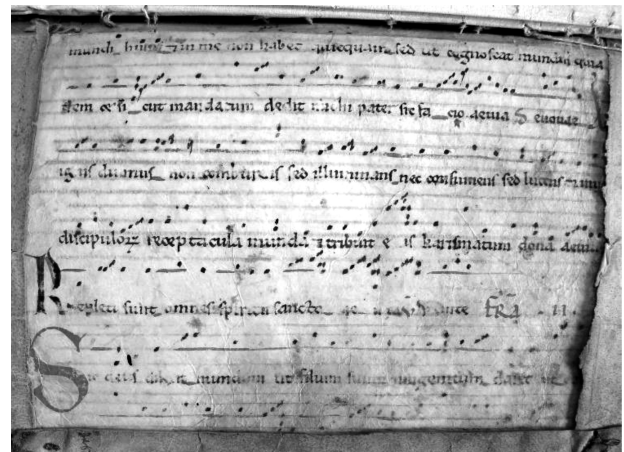 mundi huius et in me non habet quicquam sed ut cognoscat mundus quia
dem et si cut mandatum dedit michi pater sic fa cio aeuia S euouae
ig nis diuinus non comburens sed illuminans nec consumens sed lucens
discipulorum receptacula munda et tribuit e is karismatum dona aeuia
Repleti sunt omnes spiritu sancto FRA II
Sic deus dilexit mundum ut filium suum unigenitum daret